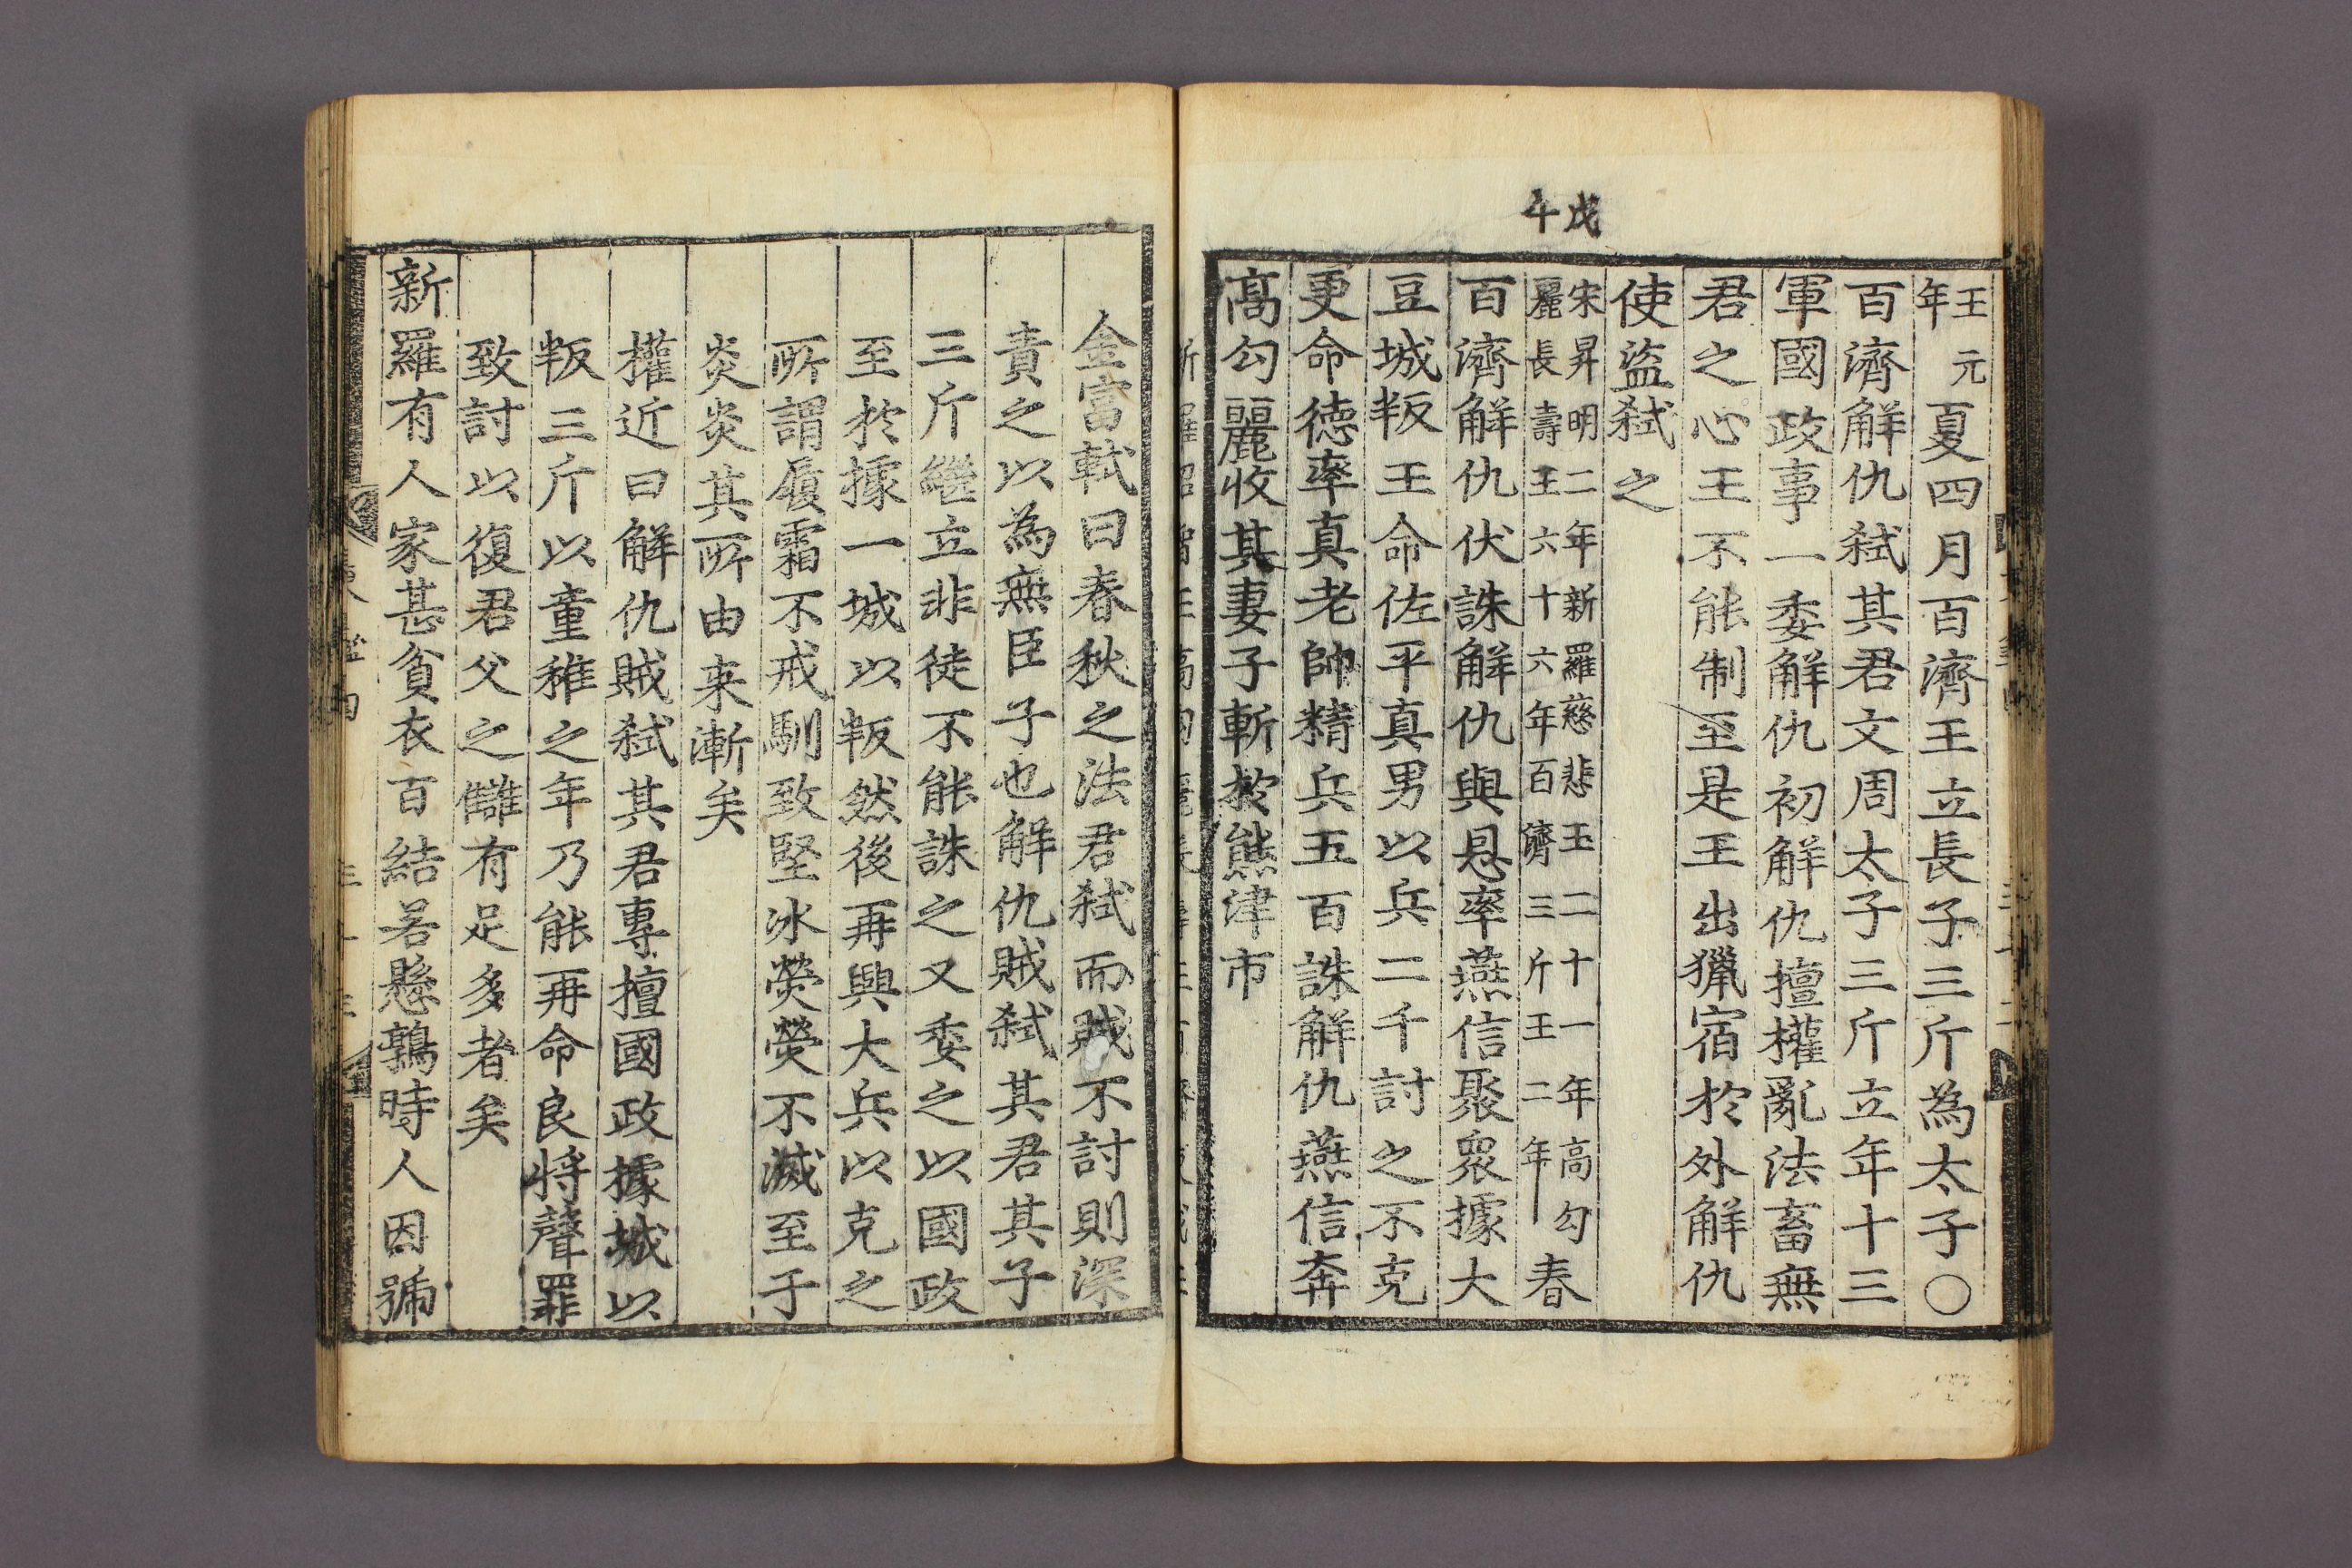 戊午
王元
年
夏四月百濟王立長子三斤為太子○
百濟解仇弑其君文周太子三斤立年十三
軍國政事一委解仇初解仇擅權亂法畜無
君之心王不能制至是王出獵宿於外解仇
使盜弑之
宋昇明二年新羅慈悲王二十一年高勾
麗長壽王六十六年百濟三斤王二年
春
百濟解仇伏誅解仇與恩率燕信聚衆據大
豆城叛王命佐平真男以兵二千討之不克
更命徳率真老帥精兵五百誅解仇燕信奔
高勾麗收其妻子斬於熊津市
金富軾曰春秋之法君弑而賊不討則深
責之以為無臣子也解仇賊弑其君其子
三斤繼立非徒不能誅之又委之以國政
至於據一城以叛然後再興大兵以克之
所謂履霜不戒馴致堅冰熒熒不滅至于
炎炎其所由来漸矣
權近曰解仇賊弑其君專擅國政據城以
叛三斤以童稚之年乃能再命良將聲罪
致討以復君父之讎有足多者矣
新羅有人家甚貧衣百結若懸鶉時人因號